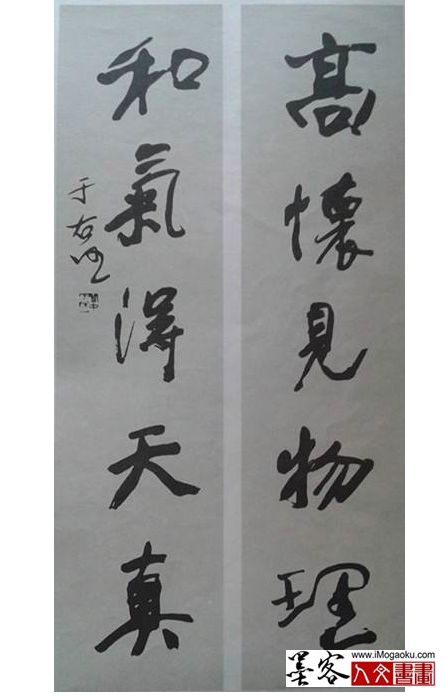 高懷見物理
和氣得天真
于右任
www.iMogaoku.com
墨客
人文書畫